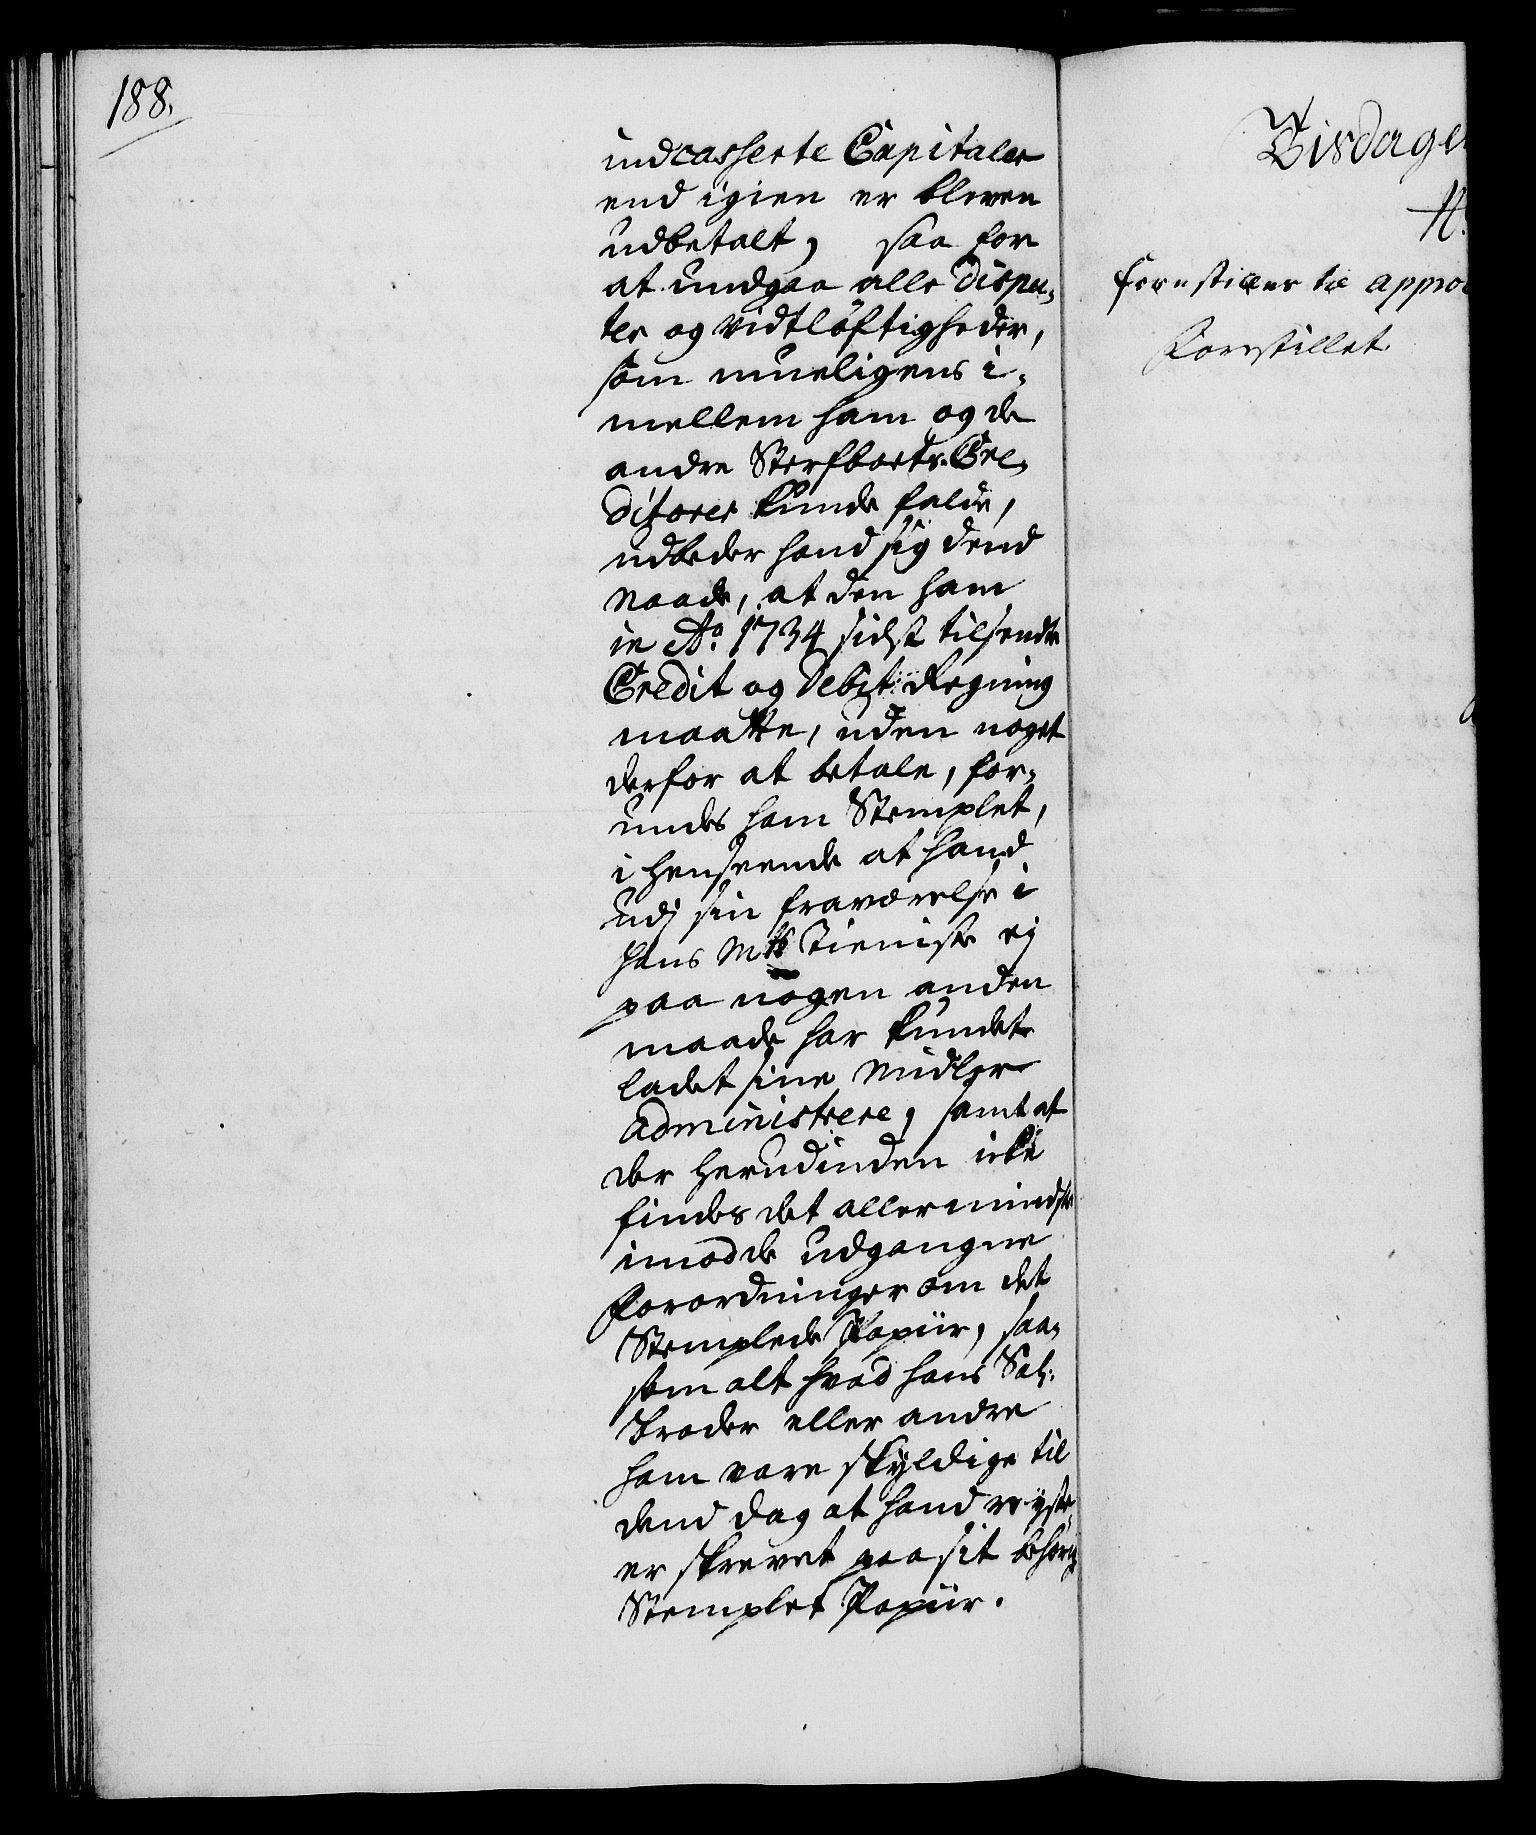 188.
indcasserte Capitaler
end igien er bleven
udbetalt, saa for
at undgaa alle dispu-
ter og vidtløftigheder,
som mueligens i-
mellem ham og de
andre Sterfboets Cre-
ditorer kunde falde,
udbeder hand sig dend
Naade, at den ham
in Ao. 1734 sidst tilsendte
Credit og Debit Regning
maatte, uden noget
derfor at betale, for-
undes ham Stemplet,
i henseende at hand
udj sin fraværelse i
Hans Mts Tieniste ej
paa nogen anden
maade har kundet
ladet sine Midler
administrere, samt at
der herudinden icke
findes det allermindste
imod de udgangne
Forordninger om det
Stemplede Papiir, saa-
som alt hvad hans Sal:
Broder eller andre
ham vare skyldige til
dend dag at hand reyste,
er skrevet paa sit behørig
Stemplet Papiir.
Tisdagen
N.
forestilles til appro
Forestillet.